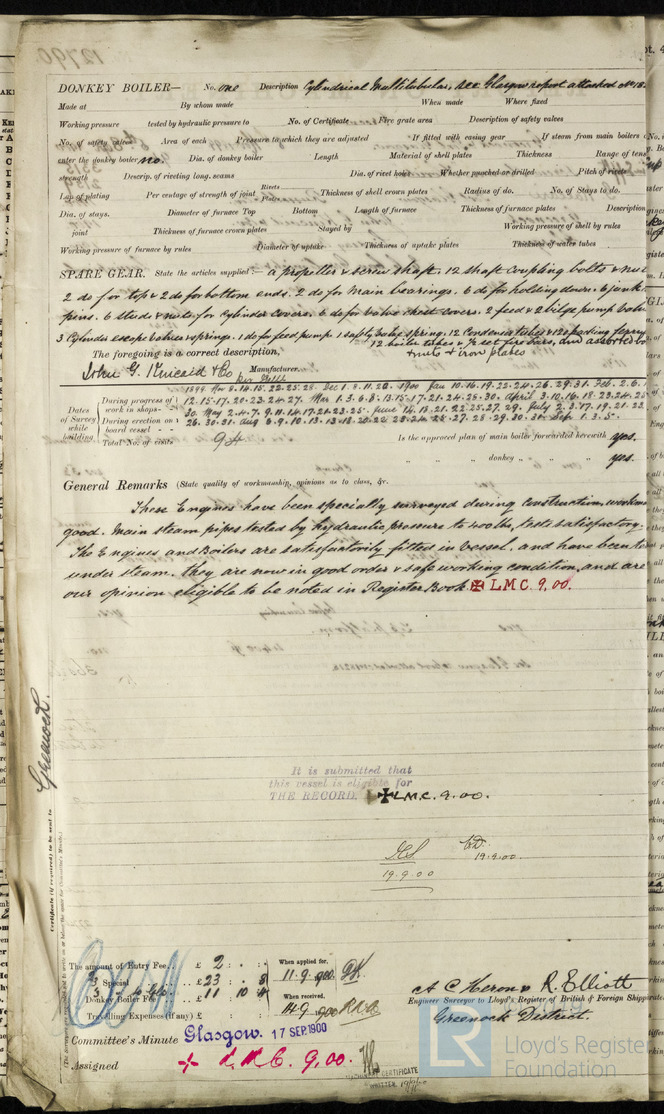 DONKEY BOILER— No. one Description Cylindrical Multitubular, see Glasgow report attached No 18
Made at By whom made When made Where fixed
Working pressure tested by hydraulic pressure to No. of Certificate Fire grate area Description of safety valves
No. of safety valves Area of each Pressure to which they are adjusted If fitted with easing gear If steam from main boilers c
enter the donkey boiler no. Dia. of donkey boiler Length Material of shell plates Thickness Range of tens
strength Descrip. of riveting long. seams Dia. of rivet holes Whether punched or drilled Pitch of rivets
Lap of plating Per centage of strength of joint Rivets Plates Thickness of shell crown plates Radius of do. No. of Stays to do.
Dia. of stays. Diameter of furnace Top Bottom Length of furnace Thickness of furnace plates Description
joint Thickness of furnace crown plates Stayed by Working pressure of shell by rules
Working pressure of furnace by rules Diameter of uptake Thickness of uptake plates Thickness of water tubes
SPARE GEAR. State the articles supplied:— a propeller & screw shaft. 12 shaft coupling bolts & nut
2 do for top & 2 do for bottom ends. 2 do for main bearings. 6 do for holding down. 6 junk r
pins. 6 studs & nuts for cylinder covers. 6 do for valve chest covers. 2 feed & 2 bilge pump valve
3 Cylinder escape valves & springs. 1 do for feed pump 1 safety valve spring. 12 Condenser tubes & 120 packing ferru
12 boiler tubes & ½ set fire bars, and assorted bo
& nuts & iron plates
The foregoing is a correct description,
John G. Kincaid & Co Manufacturer.
Dates of Survey while building
During progress of work in shops—
During erection on board vessel
Total No. of visits
1899. Nov 8. 14. 15. 22. 25. 28. Dec 1. 8. 11. 20. 1900 Jan 10. 16. 19. 22. 24. 26. 29. 31. Feb. 2. 6.
12. 15. 17. 20. 23. 24. 27. Mar 1. 3. 6. 8. 13. 15. 17. 21. 24. 26. 30. April 3. 10. 16. 18. 23. 24. 25
30. May 2. 4. 7. 9. 11. 14. 17. 21. 23. 25. June 14. 18. 21. 22. 25. 27. 29. July 2. 3. 17. 19. 21. 23
26. 30. 31. Aug 6. 9. 10. 13. 22. 23. 24. 25. 27. 28. 29. 30. Sep. 1. 3. 5.
94
Is the approved plan of main boiler forwarded herewith yes.
" " " donkey " " " yes.
General Remarks (State quality of workmanship, opinions as to class, &c.
These Engines have been specially surveyed during construction, workm
good. Main steam pipes tested by hydraulic pressure to 400 lbs, tests satisfactory.
The Engines and Boilers are satisfactorily fitted in vessel. and have been t
under steam. they are now in good order & safe working condition, and are
our opinion eligible to be noted in Register Book ✠ L M C. 9. 00.
It is submitted that
this vessel is eligible for
THE RECORD. ✠ L.M.C. 9.00.
19.9.00
19.9.00.
Greenock.
Certificate (if required) to be sent to
The amount of Entry Fee.. £ 2 : . : .
Special £ 23 : . : 8
Donkey Boiler Fee £ 11 10 4
Travelling Expenses (if any) £ : :
When applied for,
11.9.900
When received,
14.9.900
A C Heron & R. Elliott
Engineer Surveyor to Lloyd's Register of British & Foreign Shipp
Greenock District.
Committee's Minute Glasgow. 17 SEP. 1900
Assigned + L. M. C. 9. 00.
CERTIFICATE
WRITTEN
LR
Lloyd's Register
Foundation